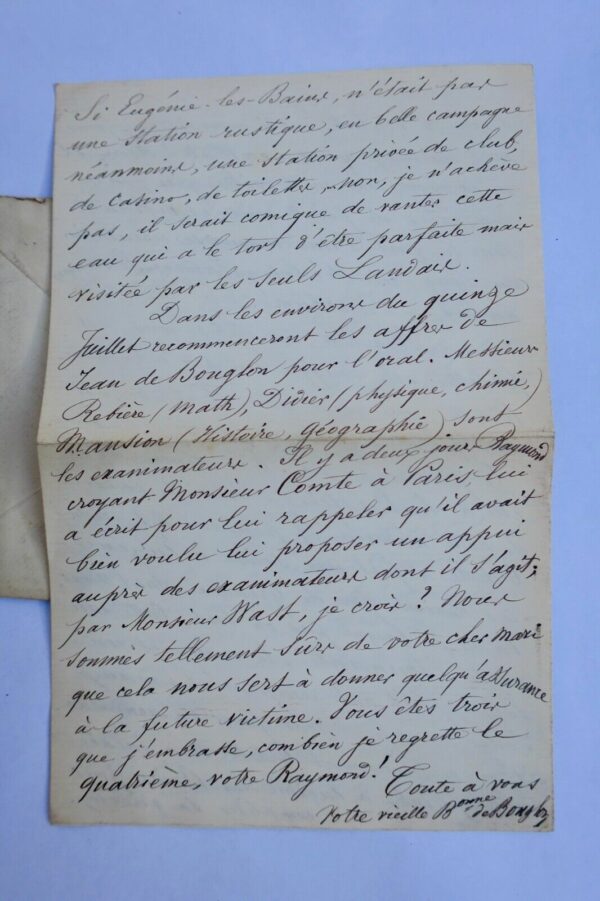 Si Eugénie-les-Bains, n'était pas
une station rustique, en belle campagne
néanmoins, une station privée de club,
de casino, de toilettes, non, je n'achève
pas, il serait comique de vanter cette
eau qui a le tort d'être parfaite mais
visitée par les seuls Landais.
Dans les environs du quinze
Juillet recommenceront les affres de
Jean de Bouglon pour l'oral. Messieurs
Rebière (math), Didier (physique, chimie,)
Mansion (Histoire, géographie) sont
les exanimateurs. Il y a deux jours Raymond
croyant Monsieur Comte à Paris lui
a écrit pour lui rappeler qu'il avait
bien voulu lui proposer un appui
auprès des exanimateurs dont il s'agit;
par Monsieur Wast, je crois? Nous
sommes tellement sûrs de votre cher mari
que cela nous sert à donner quelqu'assurance
à la future victime. Vous êtes trois
que j'embrasse, combien je regrette le
quatrième, votre Raymond!
Toute à vous
votre vieille Bonne de Bouglon